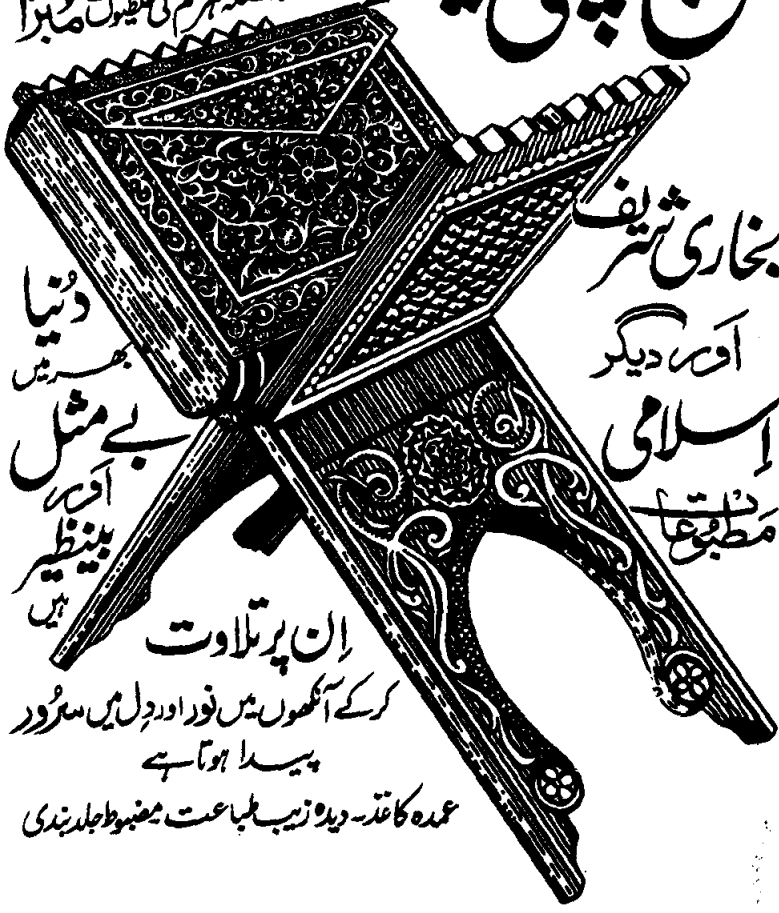 ہر قسم کی غلطیوں مُبرّا
بخاری شریف
اور دیگر
اِسلامی
مَطبُوعَات
دُنیا
بھر میں
بے مثل
اور
بینظیر
ہیں
اِن پر تلاوت
کر کے آنکھوں میں نور اور دِل میں سرُور
پیدا ہوتا ہے
عمدہ کاغذ۔ دیدہ زیب طباعت مضبوط جلد بندی